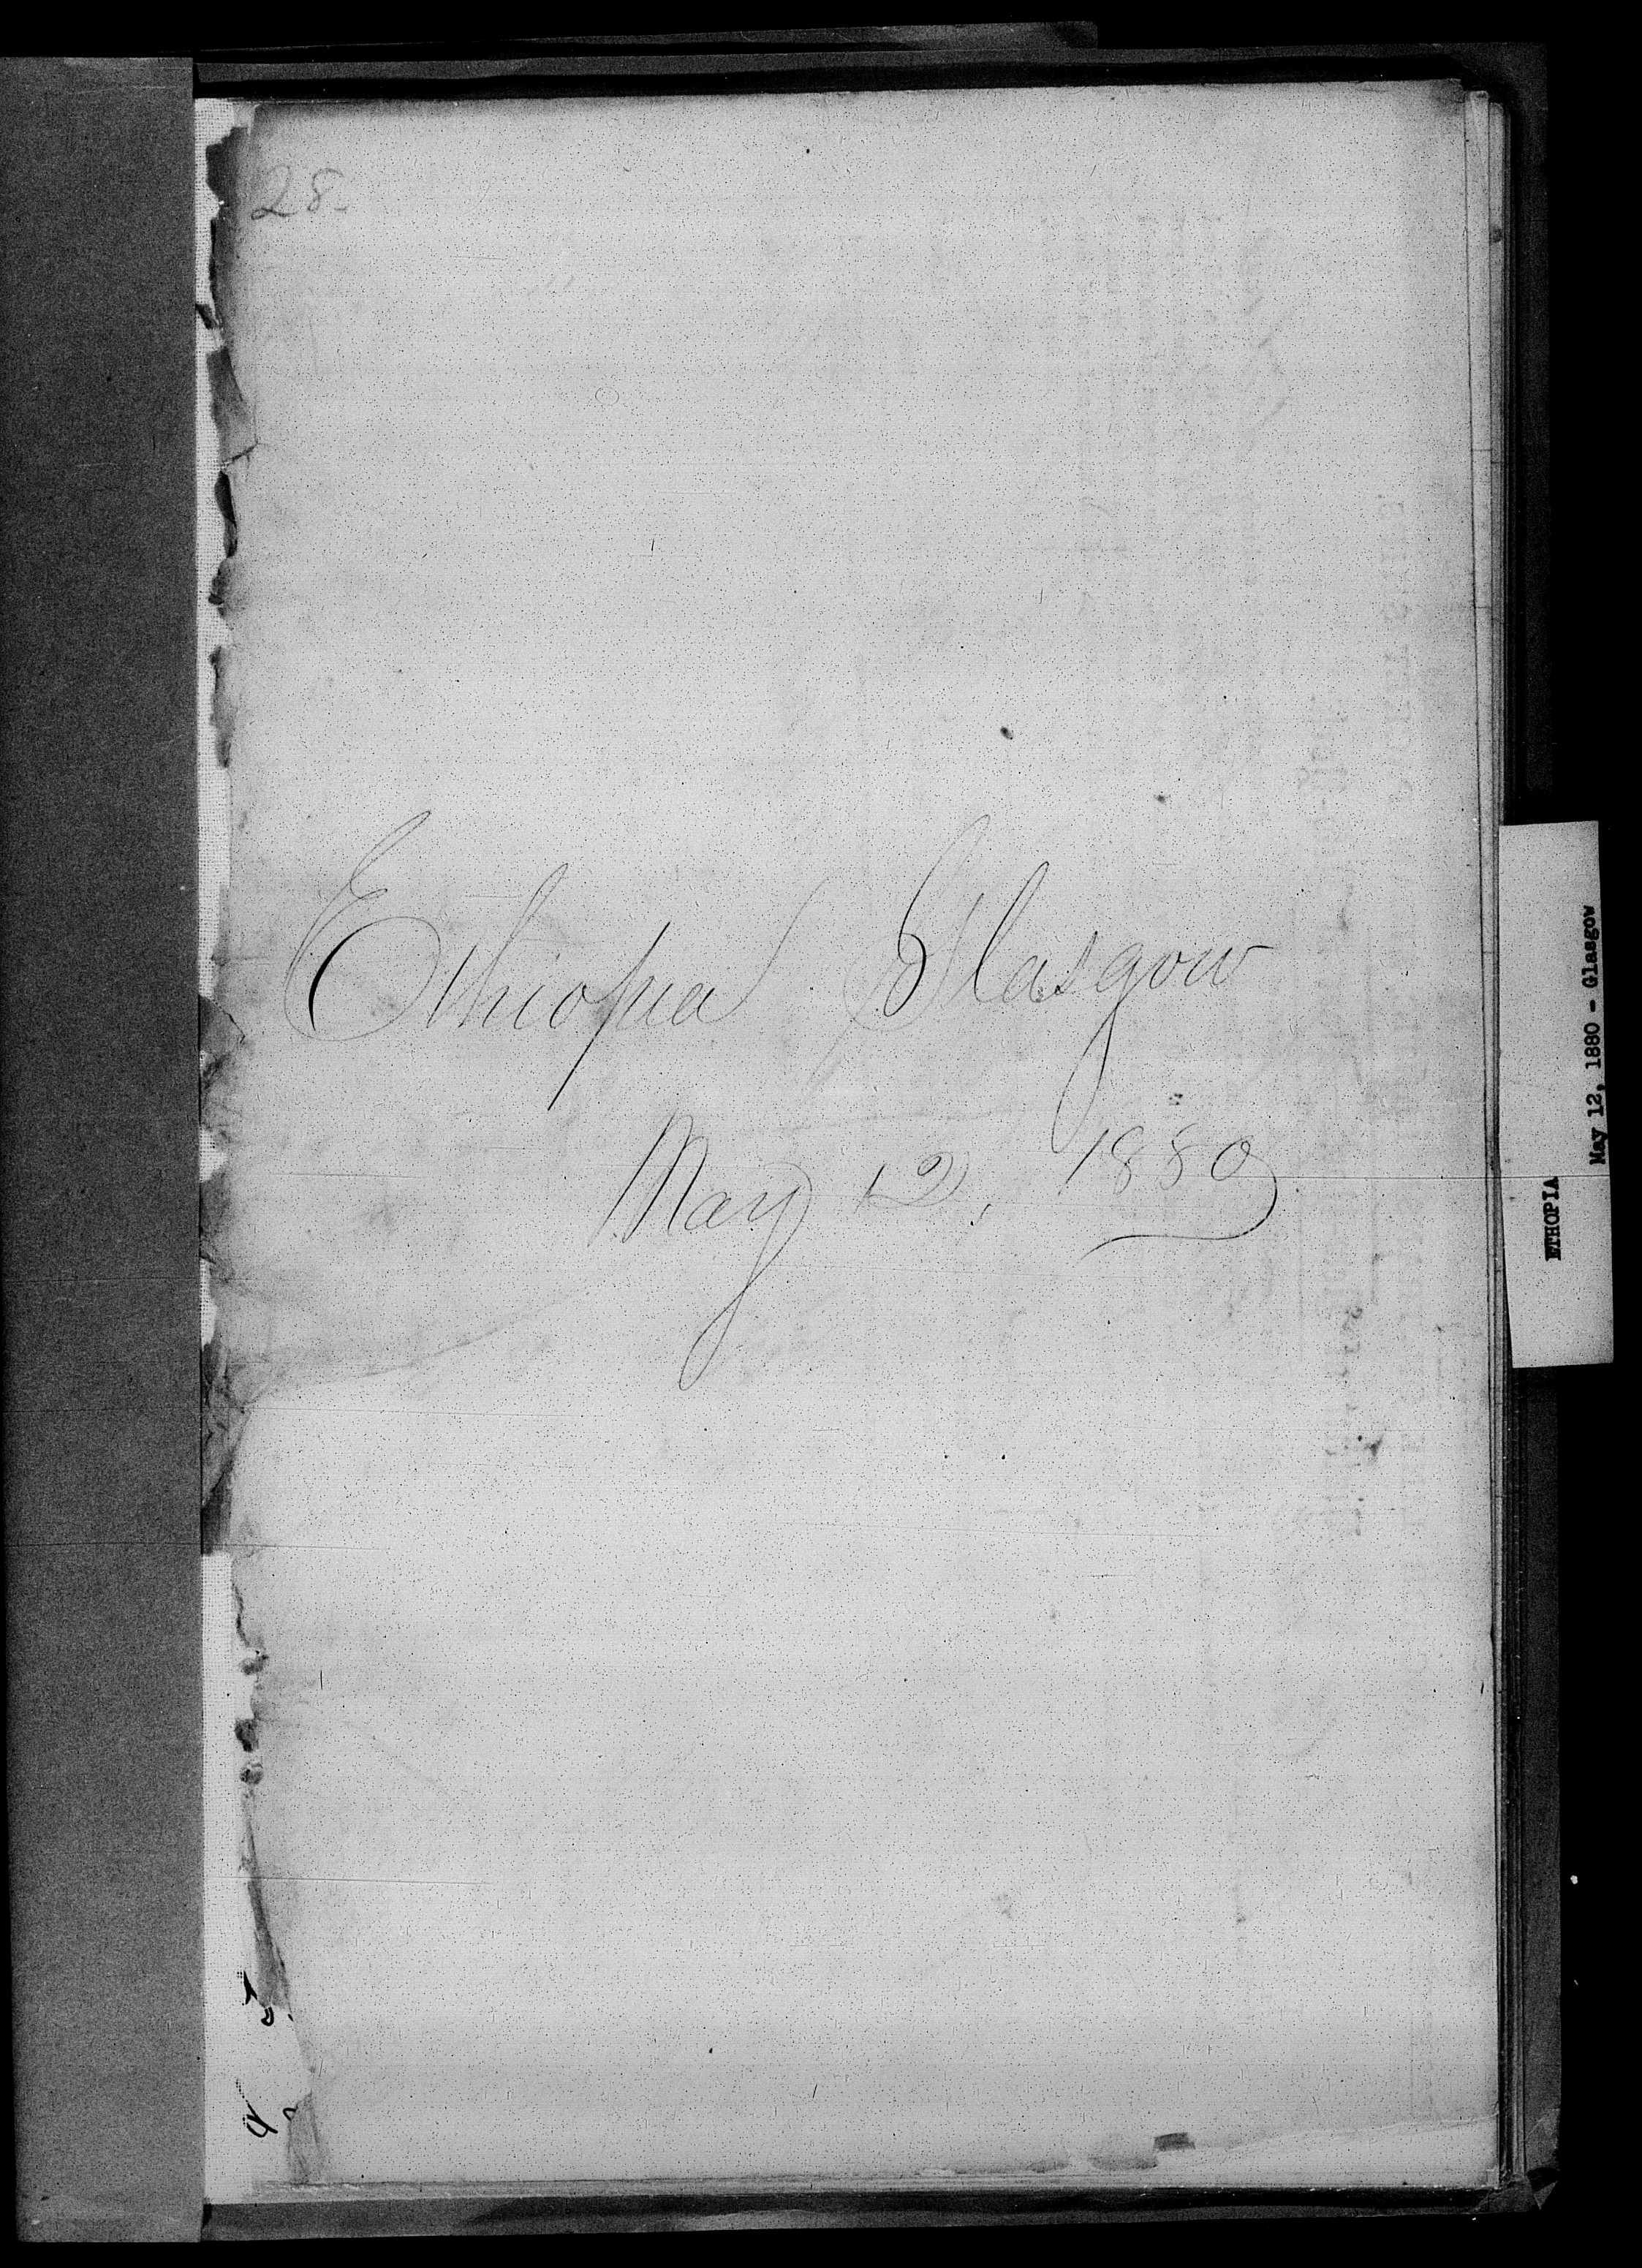 28.
Ethiopia Glasgow
May 12, 1880
ETHOPIA
May 12, 1880 - Glasgow